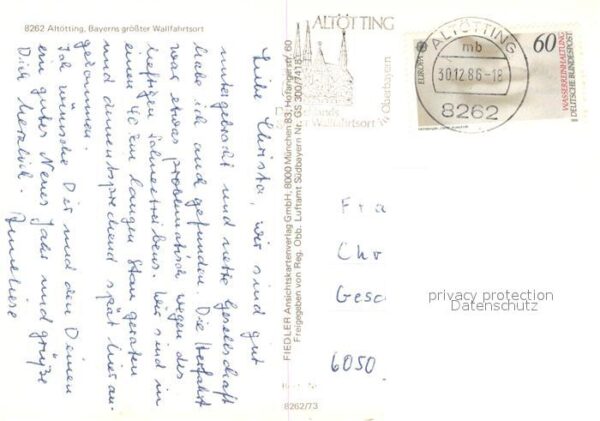 8262 Altötting, Bayerns größter Wallfahrtsort
Liebe Christa, wir sind gut
untergebracht und nette Gesellschaft
habe ich auch gefunden. Die Herfahrt
war etwas problematisch wegen des
heftigen Schneetreibens. Wir sind in
einen 40 km langen Stau geraten
und dementsprechend spät hier an-
gekommen.
Ich wünsche Dir und den Deinen
ein gutes Neues Jahr und grüße
Dich herzlich. Anneliese
FIEDLER Ansichtskartenverlag GmbH, 8000 München 83, Hofangerstr. 60
Freigegeben von Reg. Obb. Luftamt Südbayern Nr. GS 300/7418
8262/73
ALTÖTTING
Wallfahrtsort
Oberbayern
ALTÖTTING
mb
30.12.86-18
8262
EUROPA
60
WASSERREINHALTUNG
DEUTSCHE BUNDESPOST
Fra
Chr
Gesc
6050
privacy protection
Datenschutz